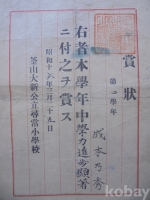 賞狀
第二學年
成本乃秀
右者本學年中學力進步顯著
ニ付之ヲ賞ス
昭和十六年三月二十五日
釜山大新公立尋常小學校
kobay